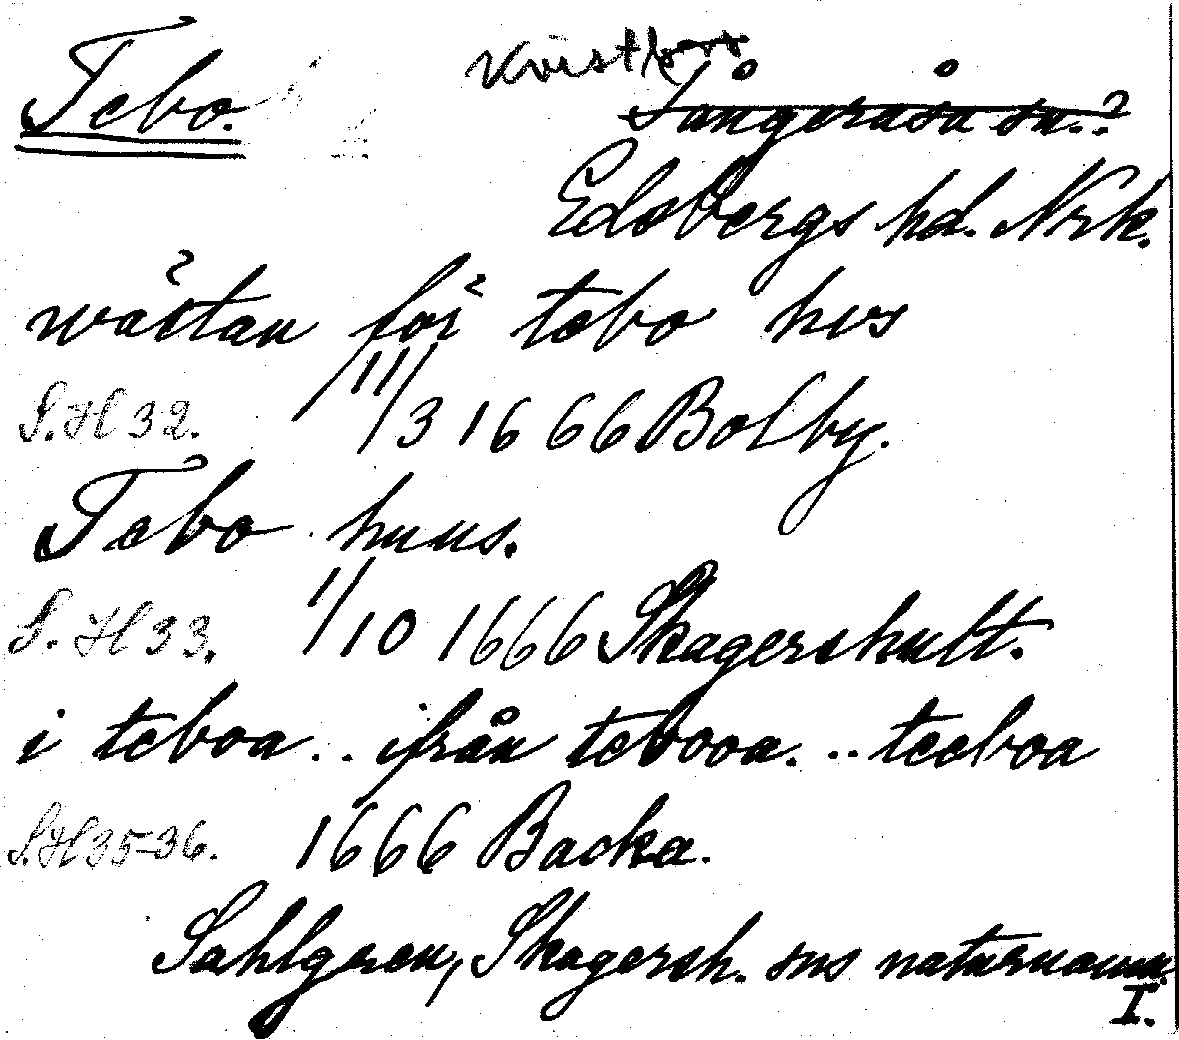 Tebo. Kvistbro
Tångeråsa sn.?
Edsbergs hd. Nrk.
wästan för tebo hus
S.H 32. 11/3 1666 Bolby.
Tebo huus.
S. H 33. 1/10 1666 Skagershult.
i teboa .. ifrån tebooa. .. teeboa
S.H 35-36. 1666 Backa.
Sahlgren, Skagersh. sns naturnamn.
I.